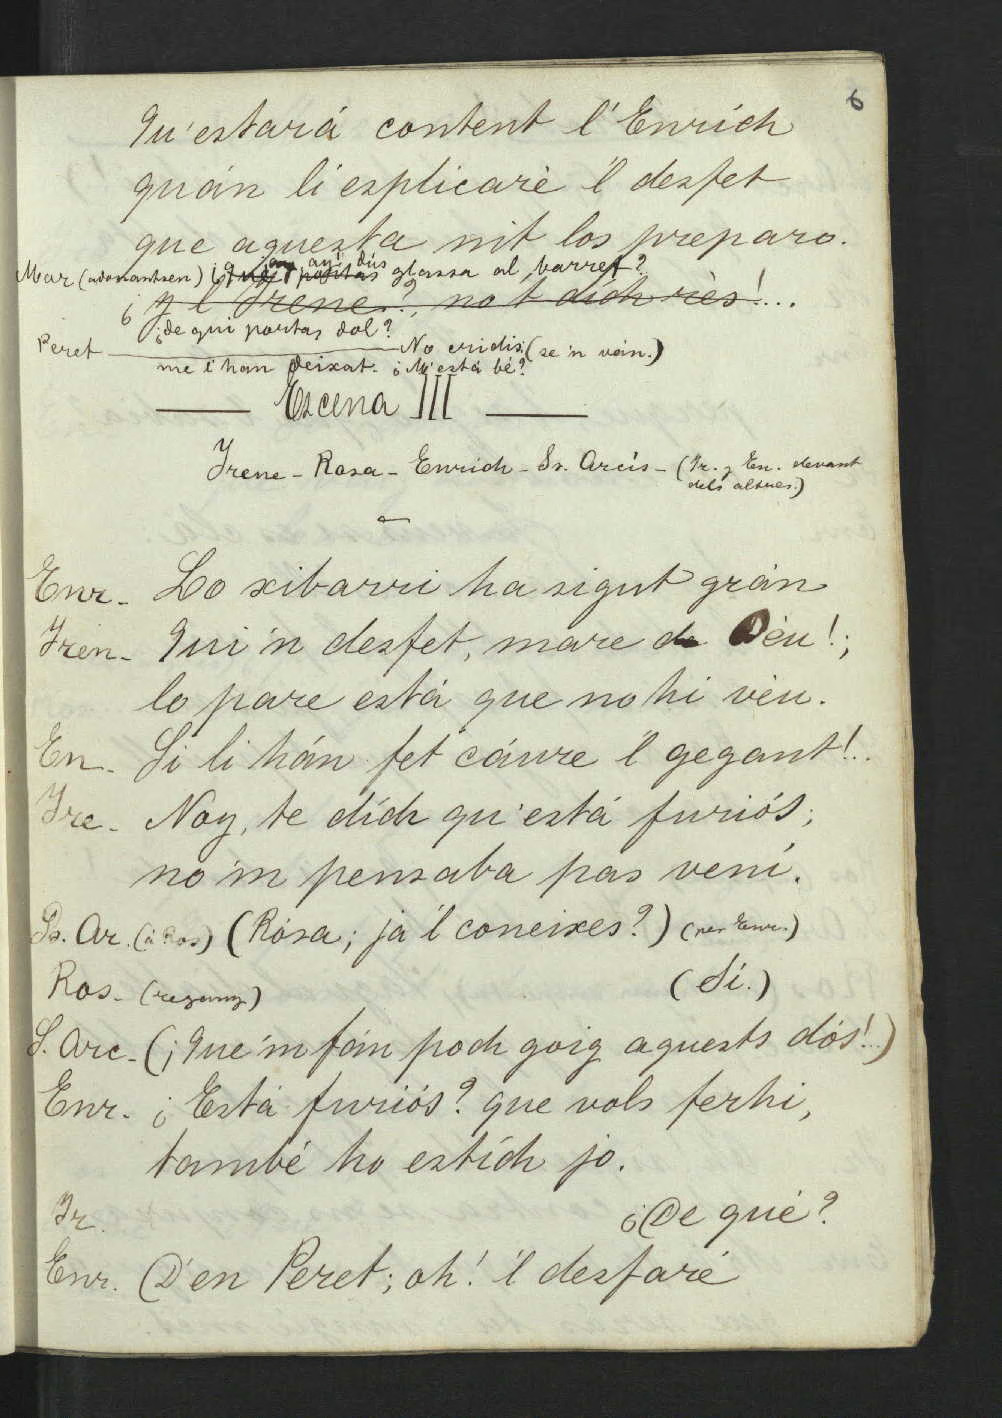 6
Qu'estará content l'Enrich
quán li esplicaré 'l desfet
que aquesta nit los preparo.
Mar (adonantsen) ¿ dús glassa al barret?
¿ y l'Irene?, no t dích rès!...
¿de qui portas dol?
Peret — No cridis; (se 'n ván.)
me l'han deixat. ¿M'está bé?
Escena III
Irene - Rosa - Enrich - Sr. Arcís - (Ir. y En. devant
dels altres.)
Enr - Lo xibarri ha sigut grán
Iren - Qui 'n desfet, mare de Déu!;
lo pare está que no hi véu.
En - Si li hán fet cáure 'l gegant!..
Ire - Noy, te dích qu'está furiós;
no 'm pensaba pas vení.
Sr. Ar. (á Ros) (Rósa; ja 'l coneixes?) (per Enr.)
Ros - (Sí.)
S. Arc - (¡Que 'm fán poch goig aquests dós!..)
Enr - ¿Está furiós? que vols ferhi,
també ho estích jo.
Ir. ¿De qué?
Enr. D'en Peret; oh! 'l desfaré